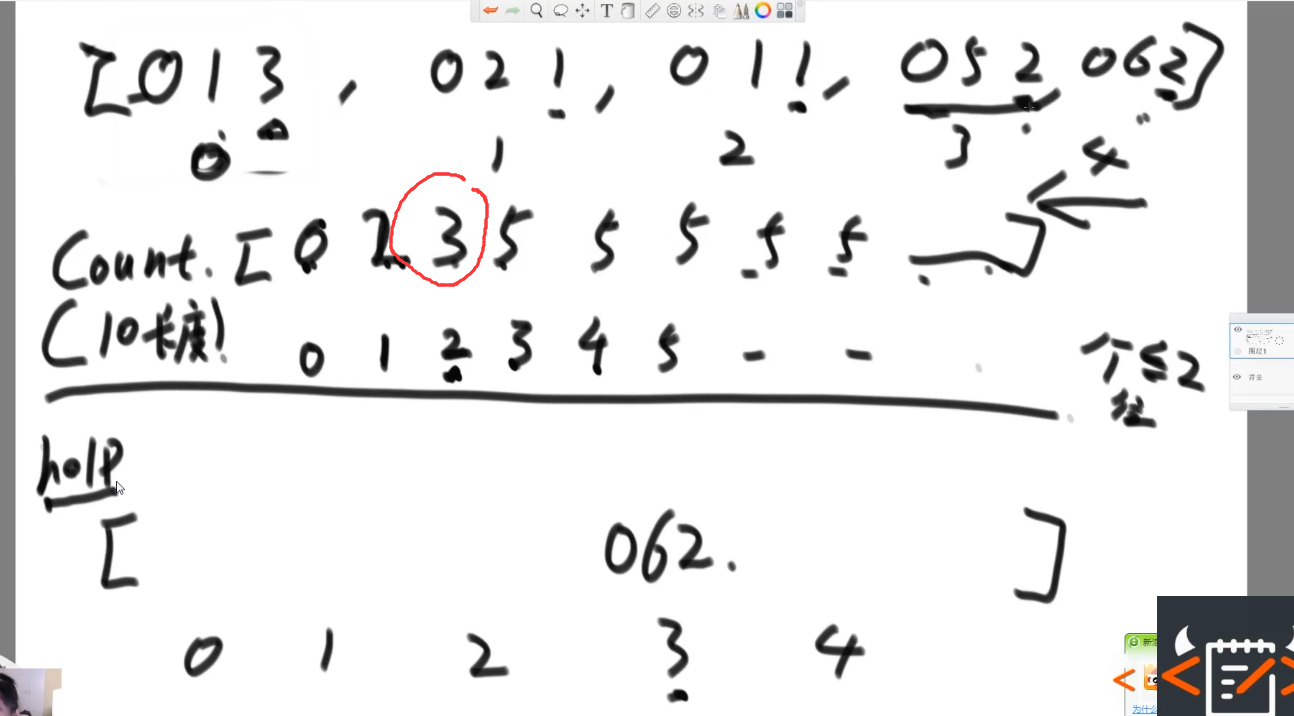 [013, 021, 011, 052 062]
0 1 2 3 4
Count. [0 2 3 5 5 5 5 5 ]
(10长度) 0 1 2 3 4 5 - -
个≤2
help
[ 062. ]
0 1 2 3 4
背景
为什么